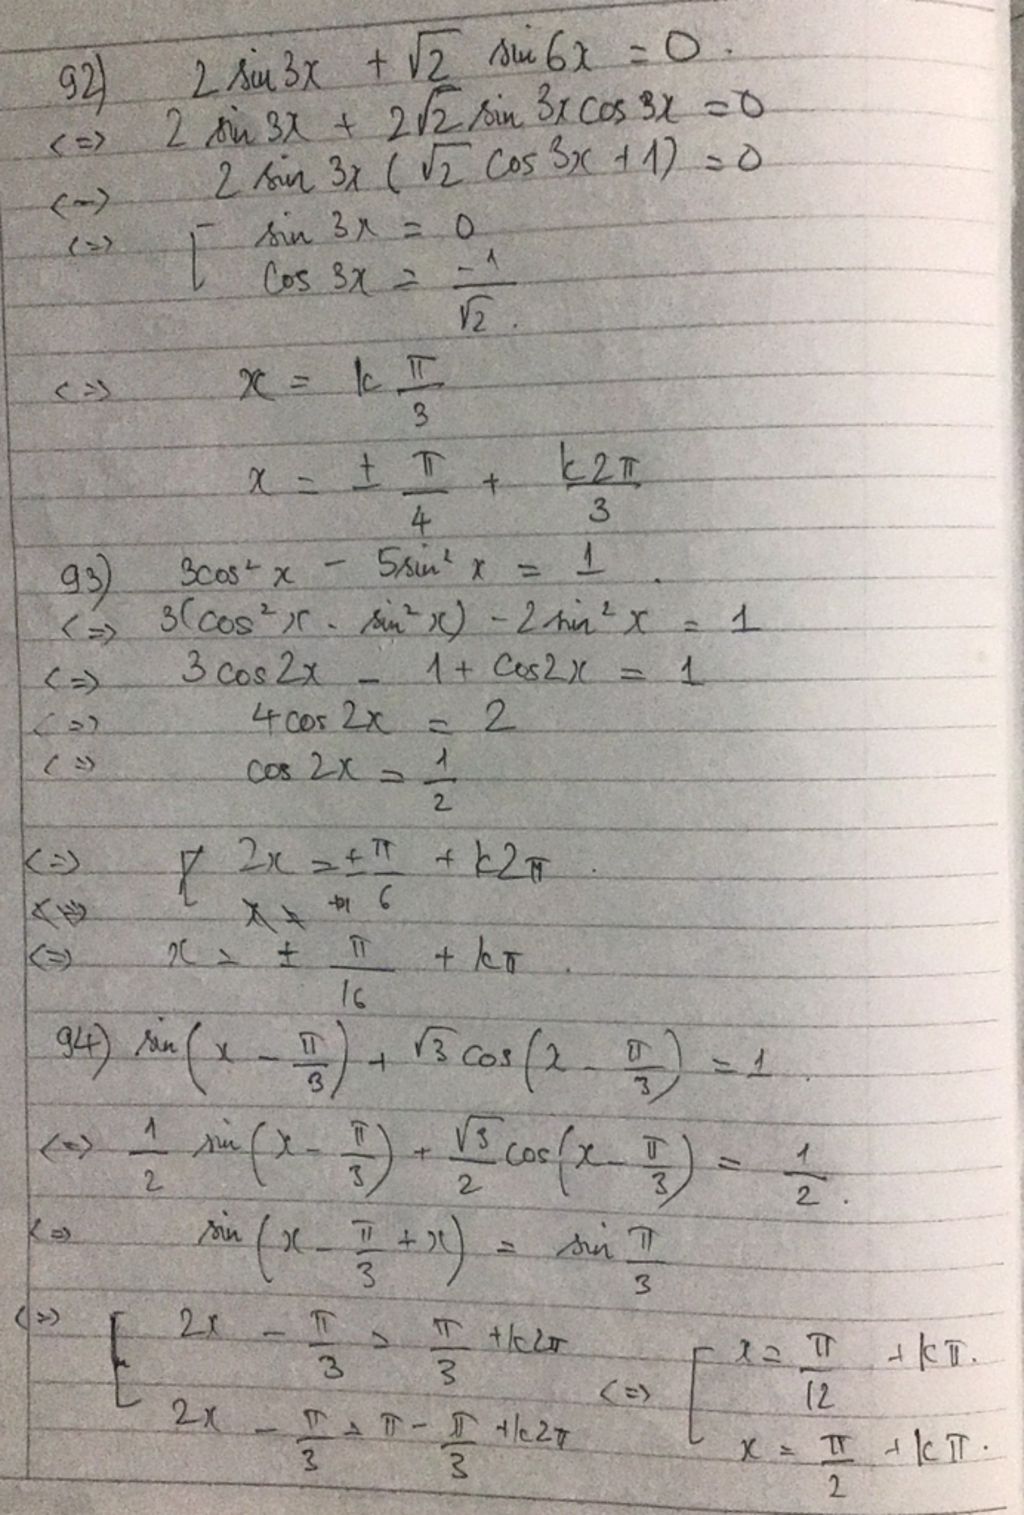 92) 2 sin 3x + √2 sin 6x = 0.
<=> 2 sin 3x + 2√2 sin 3x cos 3x = 0
<=> 2 sin 3x (√2 cos 3x + 1) = 0
<=> [ sin 3x = 0
cos 3x = -1/√2.
<=> x = k π/3
x = ± π/4 + k2π/3
93) 3cos² x - 5sin² x = 1.
<=> 3(cos² x - sin² x) - 2 sin² x = 1
<=> 3 cos 2x - 1 + cos 2x = 1
<=> 4 cos 2x = 2
<=> cos 2x = 1/2
<=> [ 2x = ± π/6 + k2π.
<=> x = ± π/16 + kπ.
94) sin(x - π/3) + √3 cos(x - π/3) = 1.
<=> 1/2 sin(x - π/3) + √3/2 cos(x - π/3) = 1/2.
<=> sin(x - π/3 + x) = sin π/3
<=> [ 2x - π/3 = π/3 + k2π
2x - π/3 = π - π/3 + k2π
<=> [ x = π/12 + kπ.
x = π/2 + kπ.